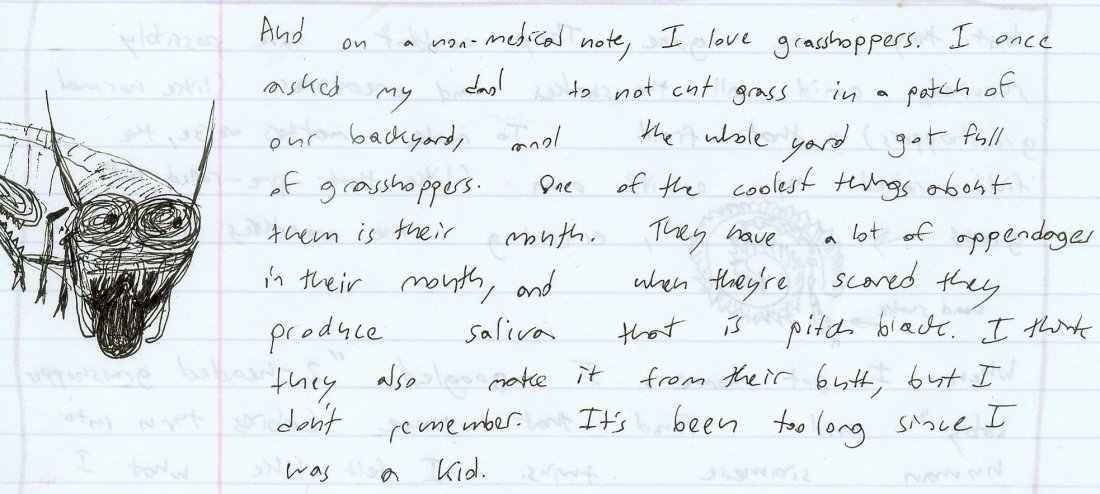 And on a non-medical note, I love grasshoppers. I once
asked my dad to not cut grass in a patch of
our backyard, and the whole yard got full
of grasshoppers. One of the coolest things about
them is their mouth. They have a lot of appendages
in their mouth, and when they're scared they
produce saliva that is pitch black. I think
they also make it from their butt, but I
don't remember. It's been too long since I
was a kid.